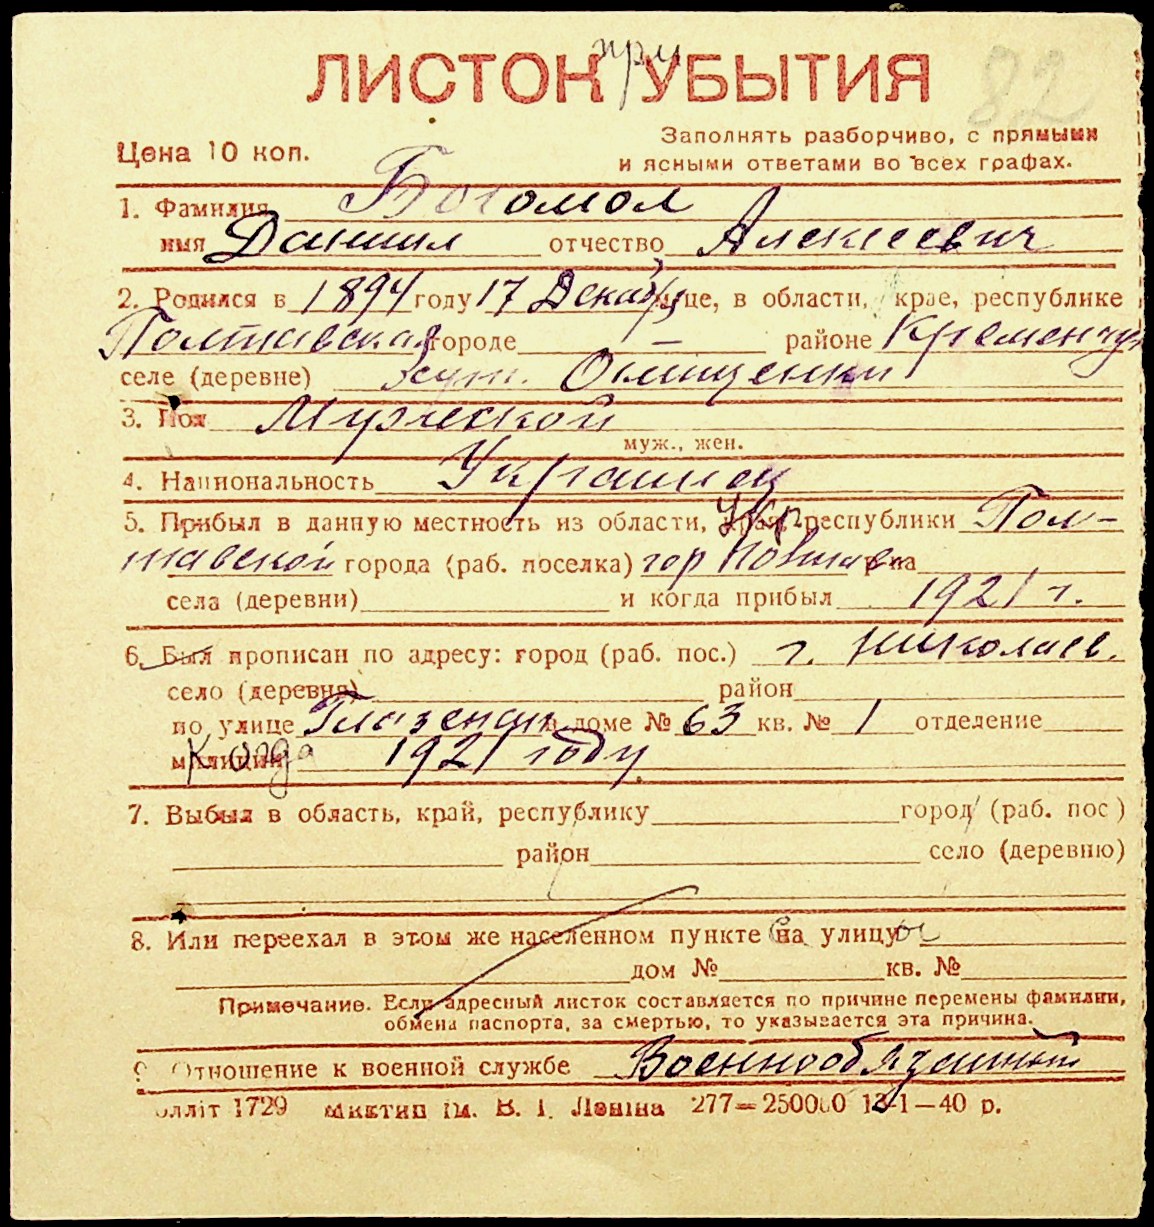 при
ЛИСТОК УБЫТИЯ
82
Заполнять разборчиво, с прямыми
Цена 10 коп.
и ясными ответами во всех графах.
1. Фамилия Богомол
имя Даниил отчество Алексеевич
2. Родился в 1894 году 17 Декабр це, в области, крае, республике
Полтавская городе — районе Кременчуг
селе (деревне) хут. Онищенки
3. Пол Мужеской
муж., жен.
4. Национальность Украинец
5. Прибыл в данную местность из области, края, Укр республики Пол-
тавской города (раб. поселка) гор Полтава р-на
села (деревни) и когда прибыл 1921 г.
6. Был прописан по адресу: город (раб. пос.) г. Николаев.
село (деревня) район
по улице Глазенап в доме № 63 кв. № 1 отделение
милиции Когда 1921 году
7. Выбыл в область, край, республику город (раб. пос)
район село (деревню)
8. Или переехал в этом же населенном пункте на улицу
дом № кв. №
Примечание. Если адресный листок составляется по причине перемены фамилии,
обмена паспорта, за смертью, то указывается эта причина.
9 Отношение к военной службе Военнообязанный
олліт 1729 Миктип ім. В. І. Леніна 277—250000 13-1—40 р.